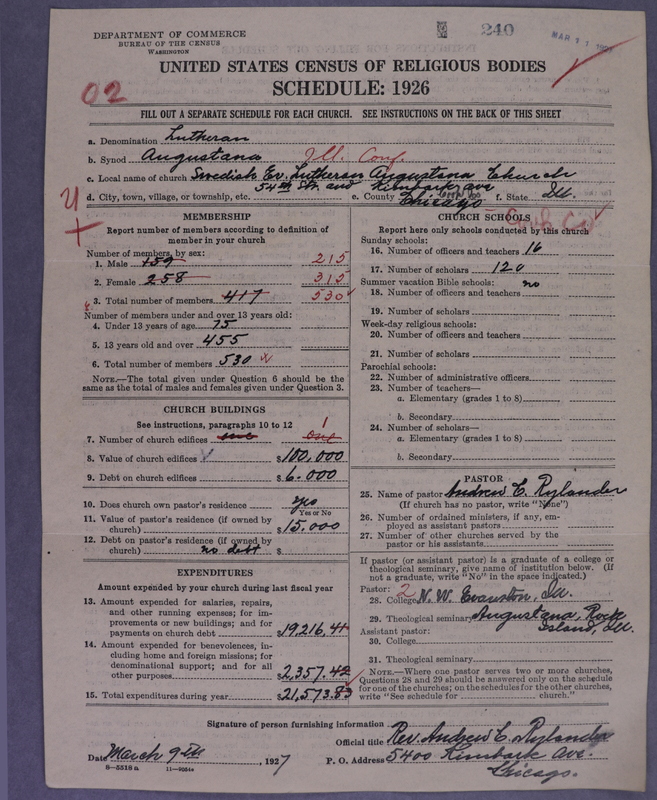 DEPARTMENT OF COMMERCE
BUREAU OF THE CENSUS
WASHINGTON
240
MAR 11
UNITED STATES CENSUS OF RELIGIOUS BODIES
SCHEDULE: 1926
02
FILL OUT A SEPARATE SCHEDULE FOR EACH CHURCH. SEE INSTRUCTIONS ON THE BACK OF THIS SHEET
a. Denomination Lutheran
b. Synod Augustana Ill. Conf.
c. Local name of church Swedish Ev. Lutheran Augustana Church
54th Str. and Kimbark ave
d. City, town, village, or township, etc. e. County Chicago f. State Ill.
MEMBERSHIP
Report number of members according to definition of
member in your church
Number of members, by sex:
1. Male 159 215
2. Female 258 315
3. Total number of members 417 530
Number of members under and over 13 years old:
4. Under 13 years of age 75
5. 13 years old and over 455
6. Total number of members 530
NOTE.—The total given under Question 6 should be the
same as the total of males and females given under Question 3.
CHURCH BUILDINGS
See instructions, paragraphs 10 to 12
7. Number of church edifices one one 1
8. Value of church edifices $100,000
9. Debt on church edifices $6.000
10. Does church own pastor's residence yes
Yes or No
11. Value of pastor's residence (if owned by
church) $15.000
12. Debt on pastor's residence (if owned by
church) no debt $
EXPENDITURES
Amount expended by your church during last fiscal year
13. Amount expended for salaries, repairs,
and other running expenses; for im-
provements or new buildings; and for
payments on church debt $19,216.41
14. Amount expended for benevolences, in-
cluding home and foreign missions; for
denominational support; and for all
other purposes $2,357.42
15. Total expenditures during year $21,573.83
CHURCH SCHOOLS
Report here only schools conducted by this church
Sunday schools:
16. Number of officers and teachers 16
17. Number of scholars 120
Summer vacation Bible schools: no
18. Number of officers and teachers
19. Number of scholars
Week-day religious schools:
20. Number of officers and teachers
21. Number of scholars
Parochial schools:
22. Number of administrative officers
23. Number of teachers—
a. Elementary (grades 1 to 8)
b. Secondary
24. Number of scholars—
a. Elementary (grades 1 to 8)
b. Secondary
PASTOR
25. Name of pastor Andrew C. Rylander
(If church has no pastor, write "None")
26. Number of ordained ministers, if any, em-
ployed as assistant pastors
27. Number of other churches served by the
pastor or his assistants
If pastor (or assistant pastor) is a graduate of a college or
theological seminary, give name of institution below. (If
not a graduate, write "No" in the space indicated.)
Pastor: 2
28. College N. W. Evanston, Ill.
29. Theological seminary Augustana, Rock
Island, Ill.
Assistant pastor:
30. College
31. Theological seminary
NOTE.—Where one pastor serves two or more churches,
Questions 28 and 29 should be answered only on the schedule
for one of the churches; on the schedules for the other churches,
write "See schedule for church."
Signature of person furnishing information
Official title Rev. Andrew C. Rylander
Date March 9th, 1927 P. O. Address 5400 Kimbark Ave.
Chicago.
8—5518a 11—9084